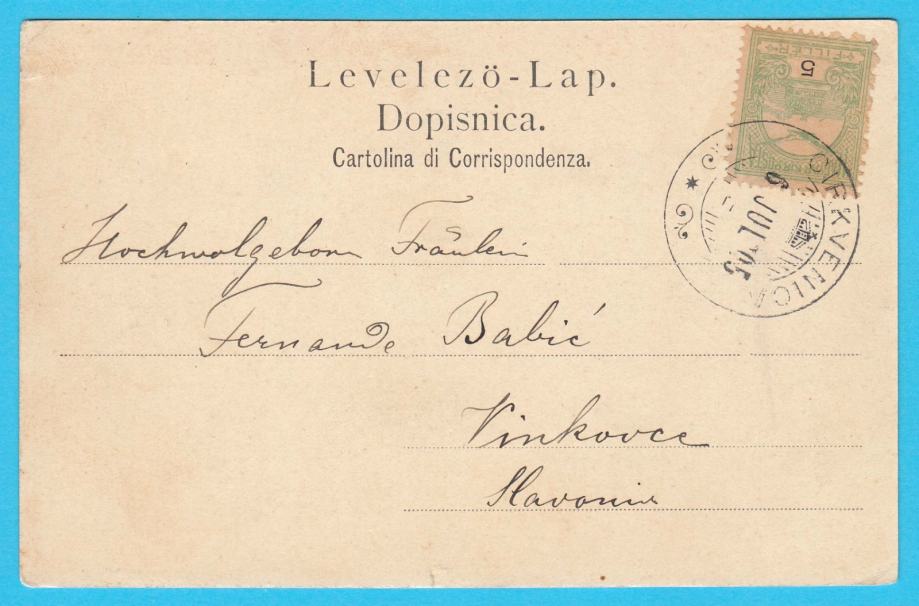 Levelezö-Lap.
Dopisnica.
Cartolina di Corrispondenza.
FILLÉR
5
CIRKVENICA
JUL 05
Hochwolgeborn Fräulein
Fernande Babić
Vinkovce
Slavonie